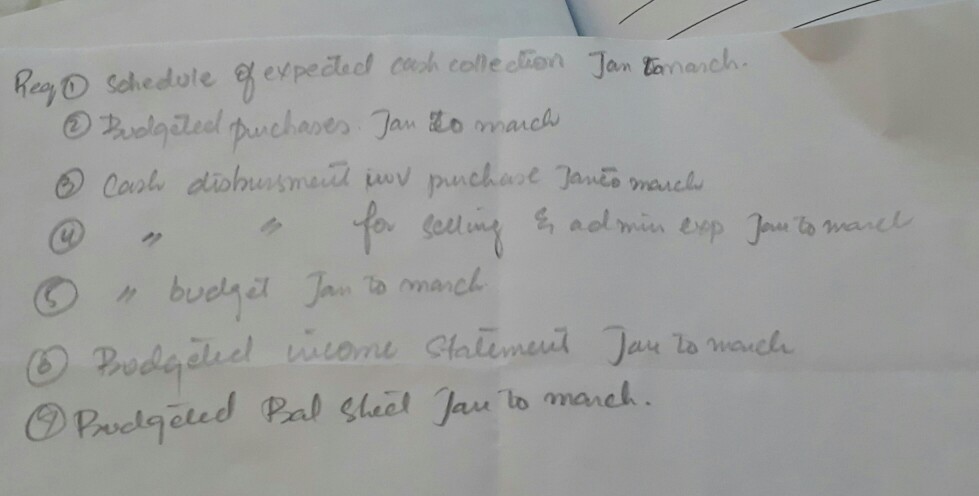 Req ① Schedule of expected cash collection Jan to march.
② Budgeted purchases Jan to march
③ Cash disbursment inv purchase Jan to march
④ " " for selling & admin exp Jan to march
⑤ " budget Jan to march
⑥ Budgeted income Statement Jan to march
⑦ Budgeted Bal Sheet Jan to march.